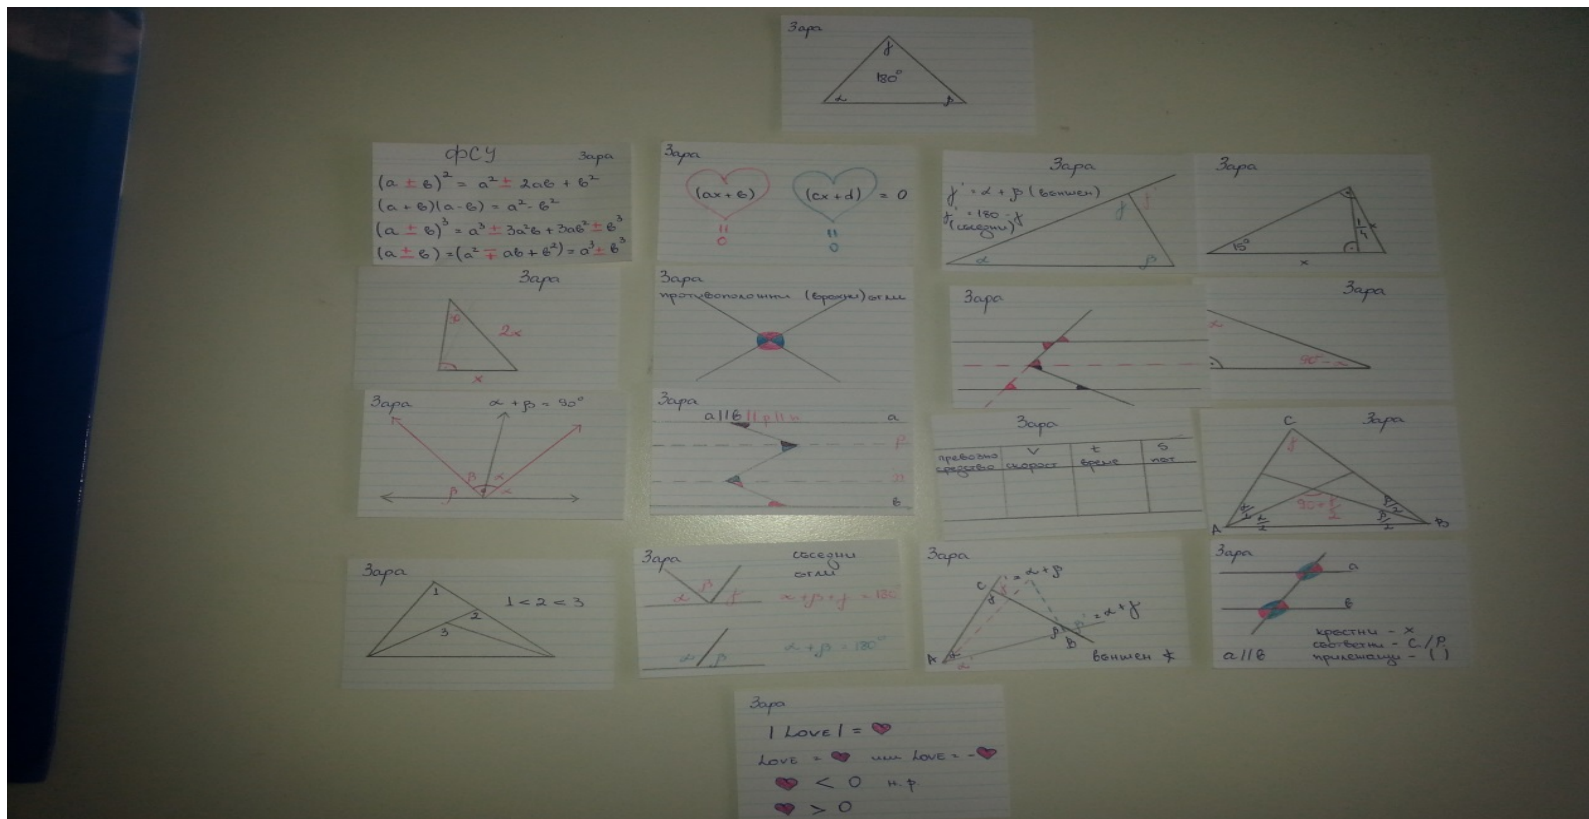 Зара
γ
180°
α β
ФСУ Зара
(a ± в)² = a² ± 2ав + в²
(a + в)(a - в) = a² - в²
(a ± в)³ = a³ ± 3a²в + 3ав² ± в³
(a ± в) = (a² ∓ ав + в²) = a³ ± в³
Зара
(ax + в) (cx + d) = 0
0 0
Зара
γ' = α + β (външен)
γ' = 180 - γ
(съседни)
γ γ'
α β
Зара
15°
1/4
x
x
Зара
30
2x
x
Зара
противоположни (връхни) ъгли
Зара
Зара
α
90 - α
Зара
α + β = 90°
β α
β α
Зара
a || в || p || n
a
p
n
в
Зара
превозно средство
V скорост
t време
S път
Зара
C
γ
90 + γ/2
α/2 α/2
β/2 β/2
A B
Зара
1
2
3
1 < 2 < 3
Зара
съседни
ъгли
α β γ
α + β + γ = 180°
α β
α + β = 180°
Зара
C γ' = α + β
γ
β β' = α + γ
B
A α
α'
външен ∢
Зара
a
в
a || в
кръстни - X
съответни - C / P
прилежащи - ( )
Зара
| LOVE | = ♥
LOVE = ♥ или LOVE = - ♥
♥ < 0 н.р.
♥ > 0